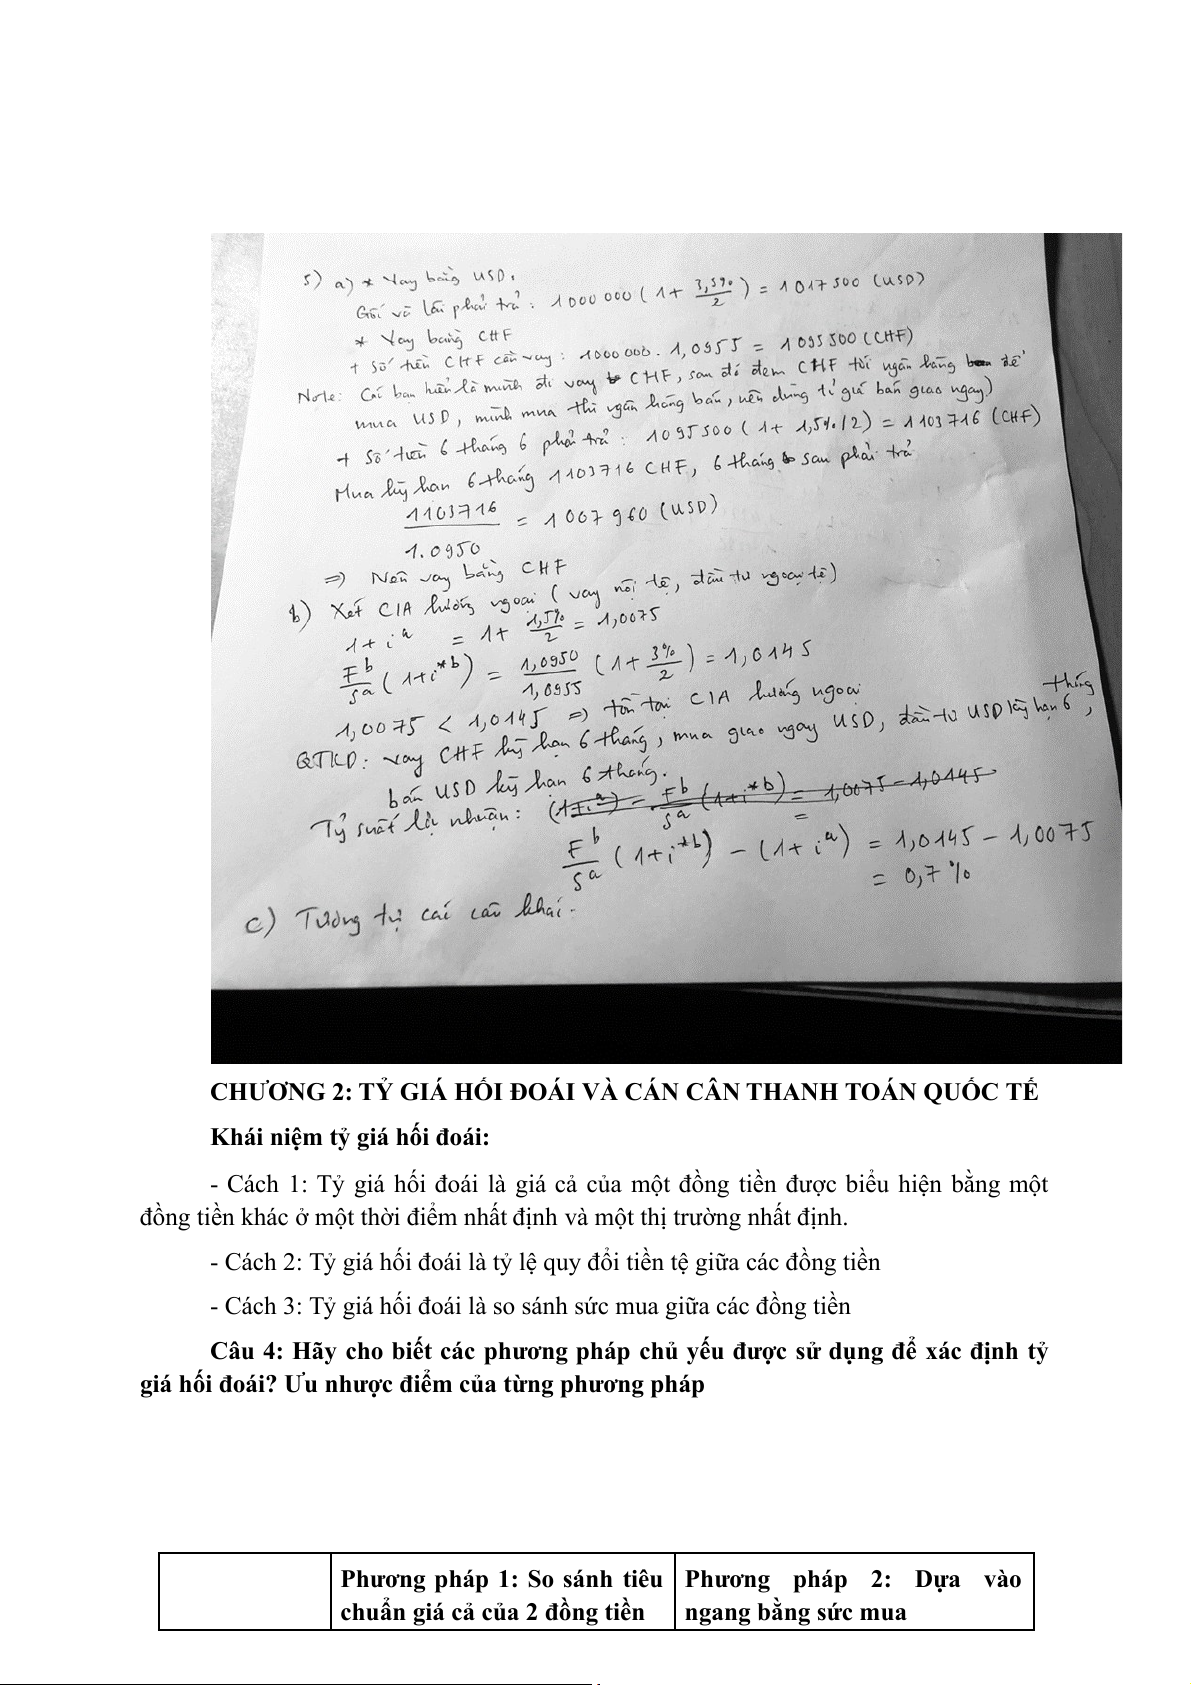 5) a) * Vay bằng USD.
Gốc và lãi phải trả : 1 000 000 ( 1 + 3,5%/2 ) = 1 017 500 (USD)
* Vay bằng CHF
+ Số tiền CHF cần vay : 1000 000 . 1,0955 = 1 095 500 (CHF)
Note: Các bạn hiểu là mình đi vay CHF, sau đó đem CHF tới ngân hàng để
mua USD, mình mua thì ngân hàng bán, nên dùng tỉ giá bán giao ngay)
+ Số tiền 6 tháng 6 phải trả : 1 095 500 ( 1 + 1,5%/2) = 1 103 716 (CHF)
Mua kỳ hạn 6 tháng 1103716 CHF, 6 tháng sau phải trả
1103716 / 1.0950 = 1 007 960 (USD)
=> Nên vay bằng CHF
b) Xét CIA hướng ngoại ( vay nội tệ, đầu tư ngoại tệ)
1 + i^a = 1 + 1,5%/2 = 1,0075
F^b/S^a ( 1 + i*^b ) = 1,0950/1,0955 ( 1 + 3%/2 ) = 1,0145
1,0075 < 1,0145 => tồn tại CIA hướng ngoại
QTKD: vay CHF kỳ hạn 6 tháng, mua giao ngay USD, đầu tư USD kỳ hạn 6 tháng,
bán USD kỳ hạn 6 tháng.
Tỷ suất lợi nhuận: (1+i^a) - F^b/S^a (1+i*^b) = 1,0075 - 1,0145
=
F^b/S^a ( 1 + i*^b ) - ( 1 + i^a ) = 1,0145 - 1,0075
= 0,7 %
c) Tương tự các câu khác.
CHƯƠNG 2: TỶ GIÁ HỐI ĐOÁI VÀ CÁN CÂN THANH TOÁN QUỐC TẾ
Khái niệm tỷ giá hối đoái:
- Cách 1: Tỷ giá hối đoái là giá cả của một đồng tiền được biểu hiện bằng một
đồng tiền khác ở một thời điểm nhất định và một thị trường nhất định.
- Cách 2: Tỷ giá hối đoái là tỷ lệ quy đổi tiền tệ giữa các đồng tiền
- Cách 3: Tỷ giá hối đoái là so sánh sức mua giữa các đồng tiền
Câu 4: Hãy cho biết các phương pháp chủ yếu được sử dụng để xác định tỷ
giá hối đoái? Ưu nhược điểm của từng phương pháp
Phương pháp 1: So sánh tiêu
chuẩn giá cả của 2 đồng tiền
Phương pháp 2: Dựa vào
ngang bằng sức mua